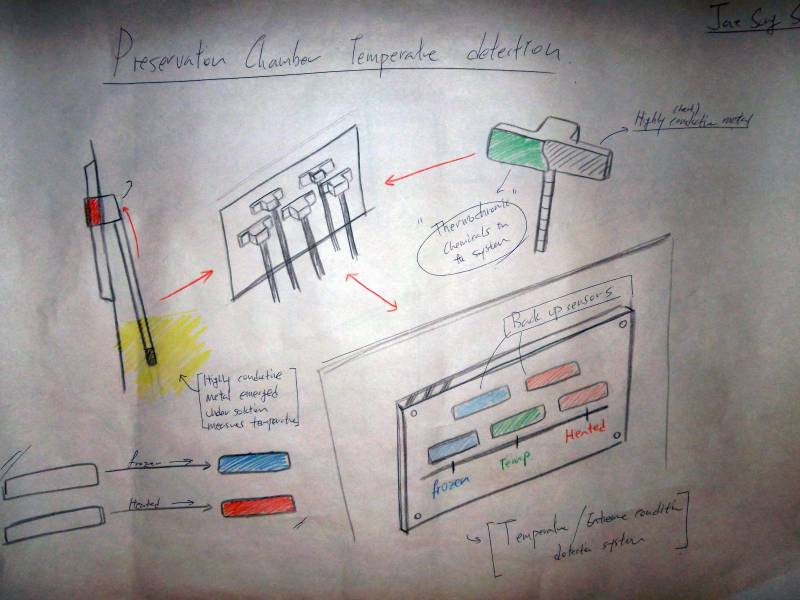 Preservation Chamber Temperature detection
(heat)
Highly conductive metal
"Thermochromic"
chemicals in
the system
Back up sensors
Highly conductive
metal emerged
under solution
measures temperature
frozen
Heated
frozen
Temp
Heated
Temperature / Extreme condition
detection system